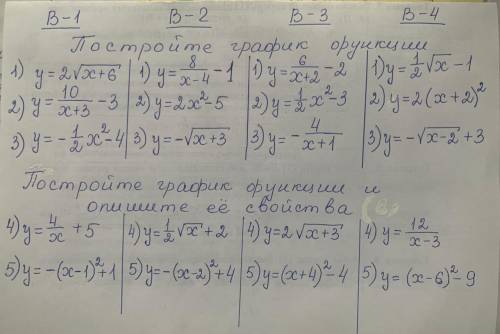 В-1 В-2 В-3 В-4
Постройте график функции
1) y=2√(x+6) 1) y=8/(x-4) -1 1) y=6/(x+2) -2 1) y=1/2√x -1
2) y=10/(x+3) -3 2) y=2x²-5 2) y=1/2x²-3 2) y=2(x+2)²
3) y=-1/2x²-4 3) y=-√(x+3) 3) y=-4/(x+1) 3) y=-√(x-2)+3
Постройте график функции и
опишите её свойства (в)
4) y=4/x +5 4) y=1/2√x+2 4) y=2√(x+3) 4) y=12/(x-3)
5) y=-(x-1)²+1 5) y=-(x-2)²+4 5) y=(x+4)²-4 5) y=(x-6)²-9